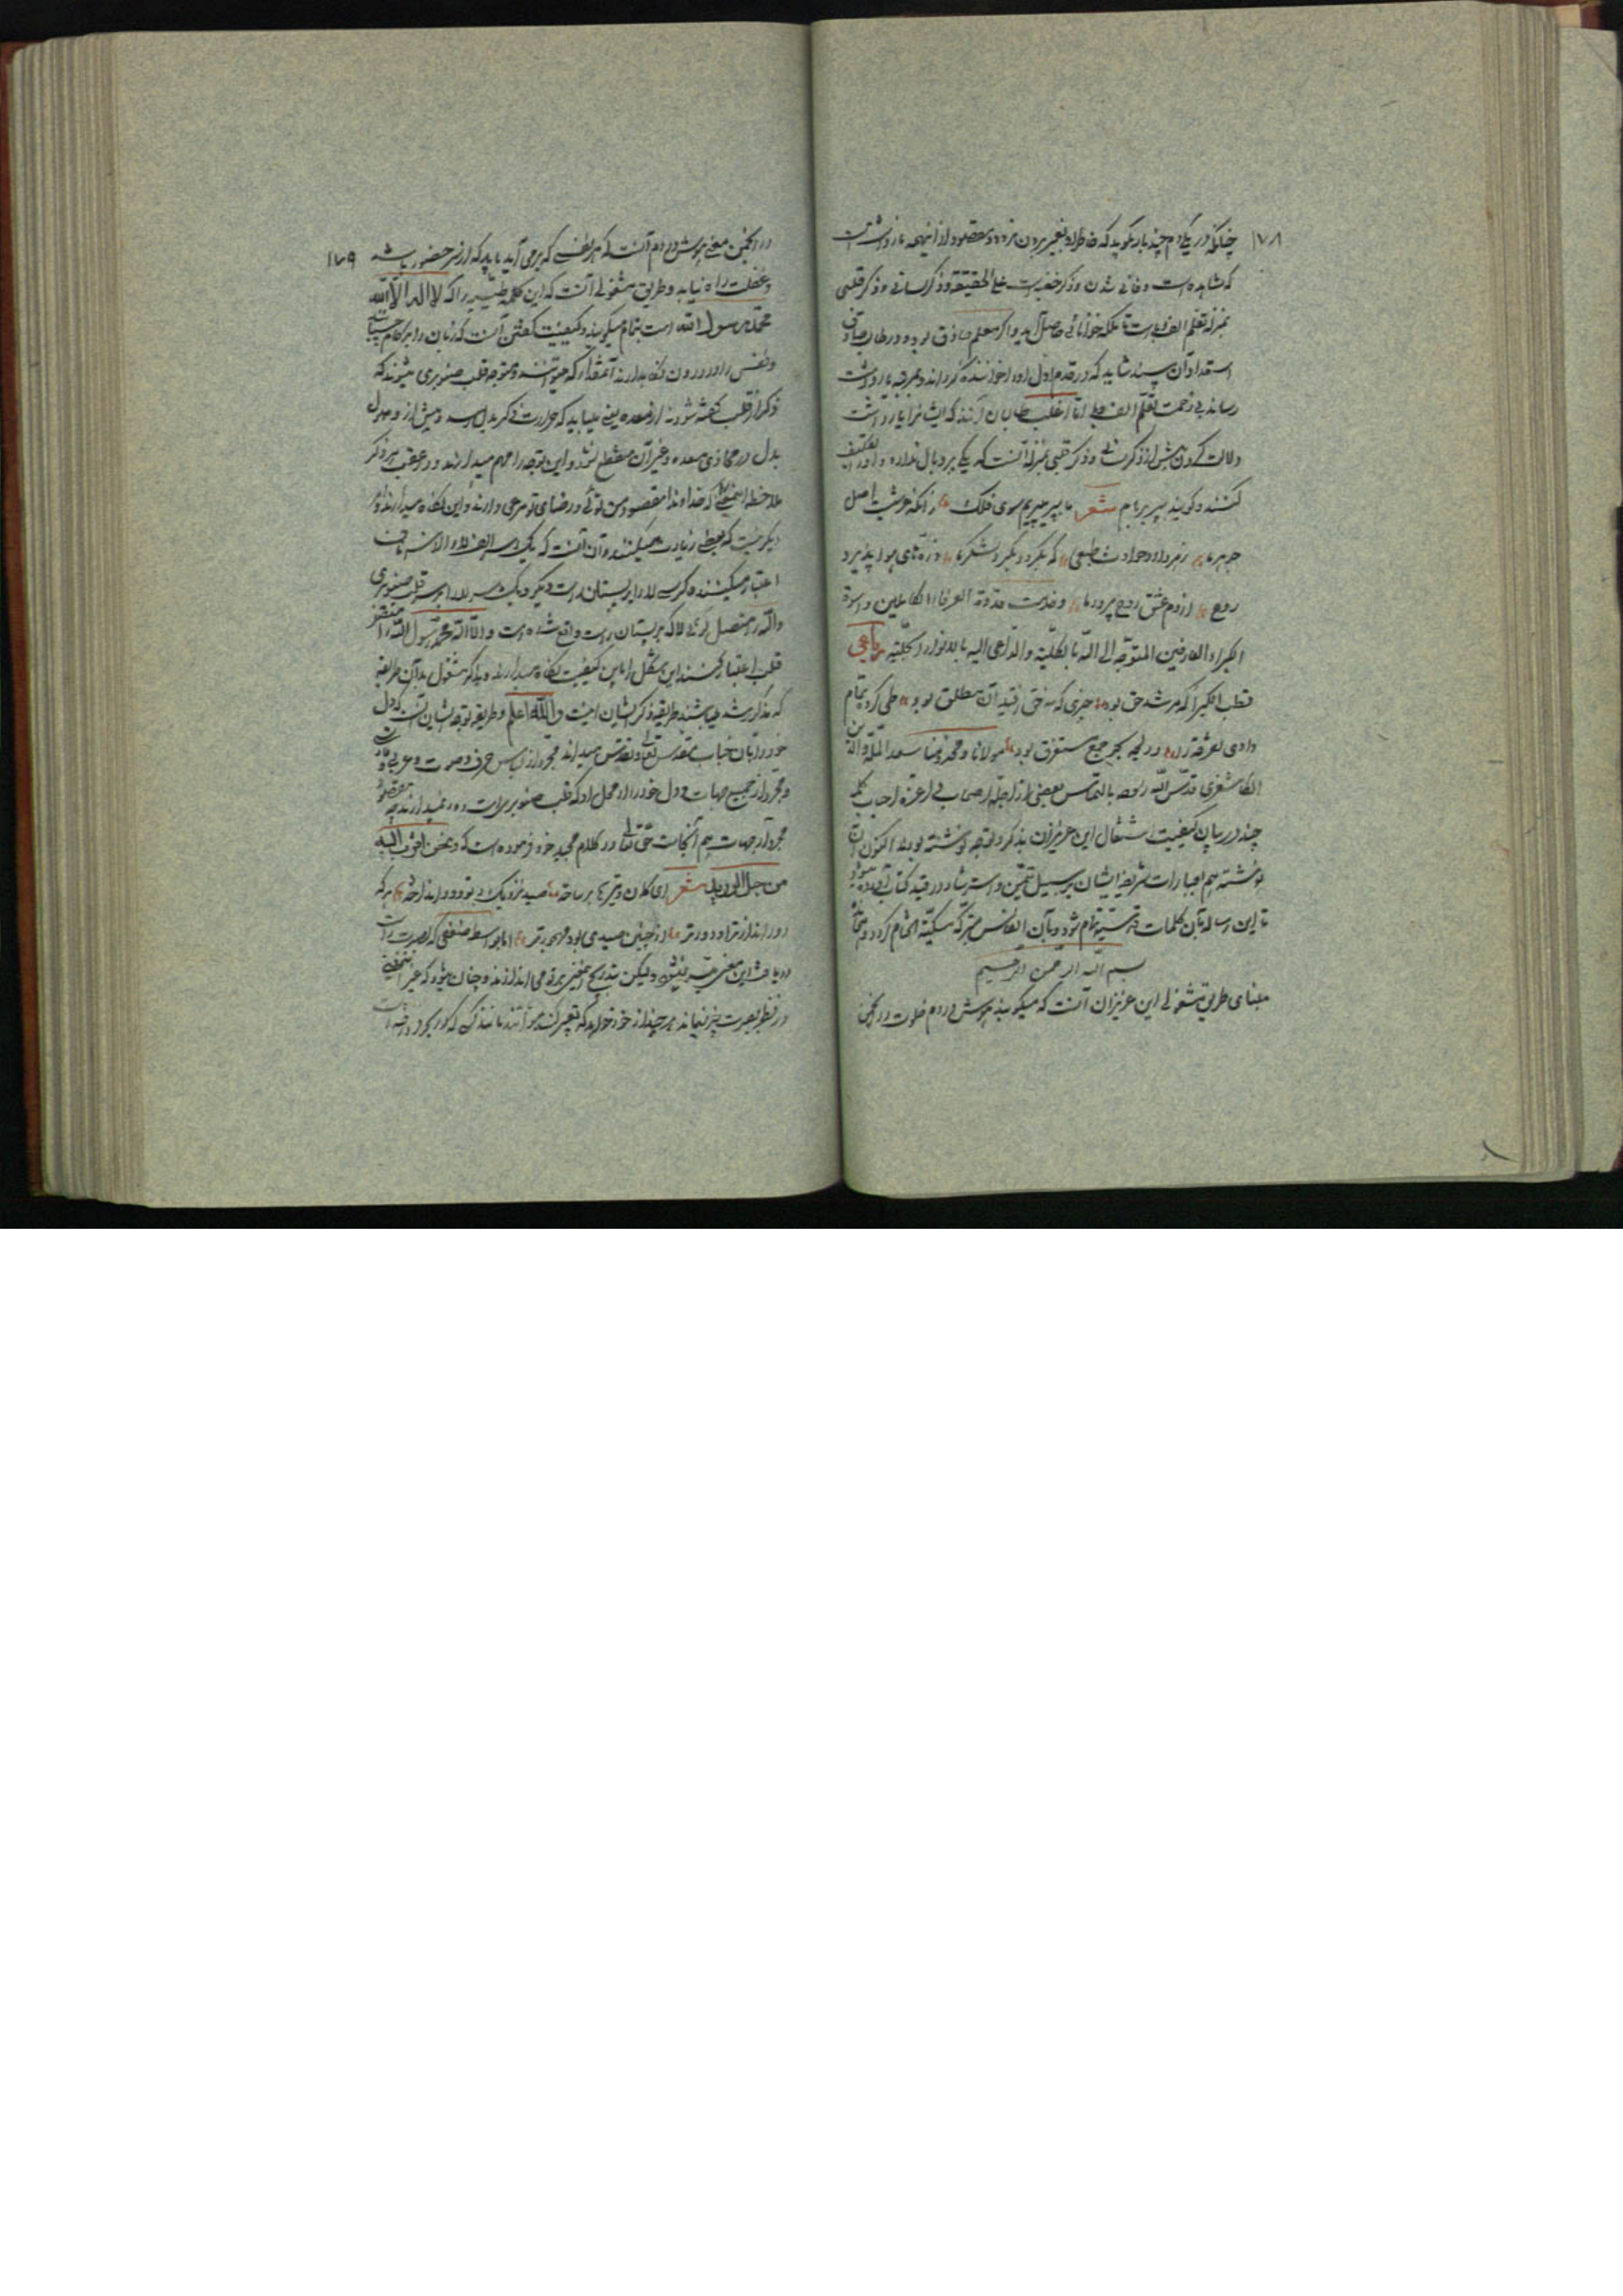 ۱۷۸
چنانکه در یک دم چند بار بگوید که خاطر او بغیر بیرون نرود و مقصود از اینهمه یادداشت است
که مشاهده است و فانی شدن و ذکر خفیه است علی الحقیقة و ذکر لسانی و ذکر قلبی
بمنزله تعلم الف و بی است تا ملکه خوانائی حاصل آید و اگر معلم حاذق بود و در طالب صادق
استعداد آن بیند شاید که در قدم اول او را خواننده گرداند و بمرتبه یادداشت
رساند بی زحمت تعلم الف و بی اما اغلب طالبان آنند که ایشانرا بیادداشت
دلالت کردن پیش از ذکر لسانی و ذکر قلبی بمنزله آنست که یکی پر و بال ندارد و او را تکلیف
کنند و گویند بپر بر بام شعر ما بپر میپریم سوی فلک زانکه عرشیست اصل
جوهر ما زهر دارد حوادث طبعی که بگردد بگرد لشکر ما ذره‌های هوا پذیرد
روح از دم عشق روح پرور ما و خدمت قدوة العرفاء الکاملین و اسوة
الکبراء العارفین المتوجه الی الله بالکلیة والداعی الیه بالانوار الجلیة رباعی
قطب الکبرا که مرشد حق بود چیزی که نه حق ز قید آن مطلق بود طی کرده تمام
وادی تفرقه را در لجه بحر جمع مستغرق بود مولانا و مخدومنا سعد الملة والدین
الکاشغری قدس الله روحه بالتماس بعضی از اجله اصحاب و اعزه احباب کلمه
چند در بیان کیفیت اشتغال این عزیزان بذکر و توجه نوشته بودند اکنون آن
نوشته هم بعبارات شریفه ایشان بر سبیل تیمن و استرشاد در قید کتابت آورده میشود
تا این رساله بآن کلمات قدسیه تمام شود و بآن انفاس متبرکه مسکیة الختام گردد
بسم الله الرحمن الرحیم
مبنای طریق مشغولی این عزیزان آنست که میگویند هوش در دم خلوت در انجمن
۱۷۹
در انجمن معنی هوش در دم آنست که هر نفسی که برمی آید باید که از سر حضور باشد
و غفلت راه نیابد و طریق مشغولی آنست که این کلمه طیبه را که لا اله الا الله
محمد رسول الله است بتمام میگویند و کیفیت گفتن آنست که زبان را بر کام چسبانیده
و نفس را در درون نگاه بدارند آنمقدار که میتوانند و متوجه قلب صنوبری میشوند که
ذکر از قلب گفته شود نه از معده یعنی میباید که حرارت ذکر بدل رسد و پیش از وصول
بدل در محاذی معده و غیر آن منقطع نشود و این توجه را مهم میدارند و در عقب هر ذکر
ملاحظه اینمعنی که خداوندا مقصود من توئی و رضای تو مرعی دارند و این نگاه میدارند و
دیگریست که بعضی زیادت میکنند و آن آنست که یک سر الف لا را از سر ناف
اعتبار میکنند و کرسی لا را بر پستان راست و دیگر یک سر لا را بر سر قلب صنوبری
و اله را متصل کرسی لا که بر پستان راست واقع شده است و الا الله محمد رسول الله را
قلب اعتبار کنند این شکل را باین کیفیت نگاه میدارند و بذکر مشغول بدان طریقه
که مذکور شد میباشند طریقه ذکر ایشان اینست والله اعلم و طریقه توجه ایشان آنست که دل
خود را بآن جناب مقدس تعالی و تقدس میدارند مجرد از لباس حرف و صوت و عربی و فارسی
و مجرد از جمیع جهات و دل خود را از محل او که قلب صنوبریست دور نمیدارند چه مقصود
مجرد از جهات هم آنجاست حق تعالی در کلام مجید خود فرموده است که و نحن اقرب الیه
من حبل الورید شعر ای کمان و تیرها بر ساخته صید نزدیک و تو دور انداخته هر که
دور اندازتر او دورتر از چنین صیدی بود مهجورتر اما بواسطه ضعفی که بصیرت راست
دریافت این معنی میسر نمیشود ولیکن بتدریج اینمعنی پرتو می اندازند و چنان میشود که غیر اینمعنی
در نظر بصیرت چیزی نماند هر چند از خود خواهد که تعبیر کند نتواند مانند کسی که در بحر فرو رفته است